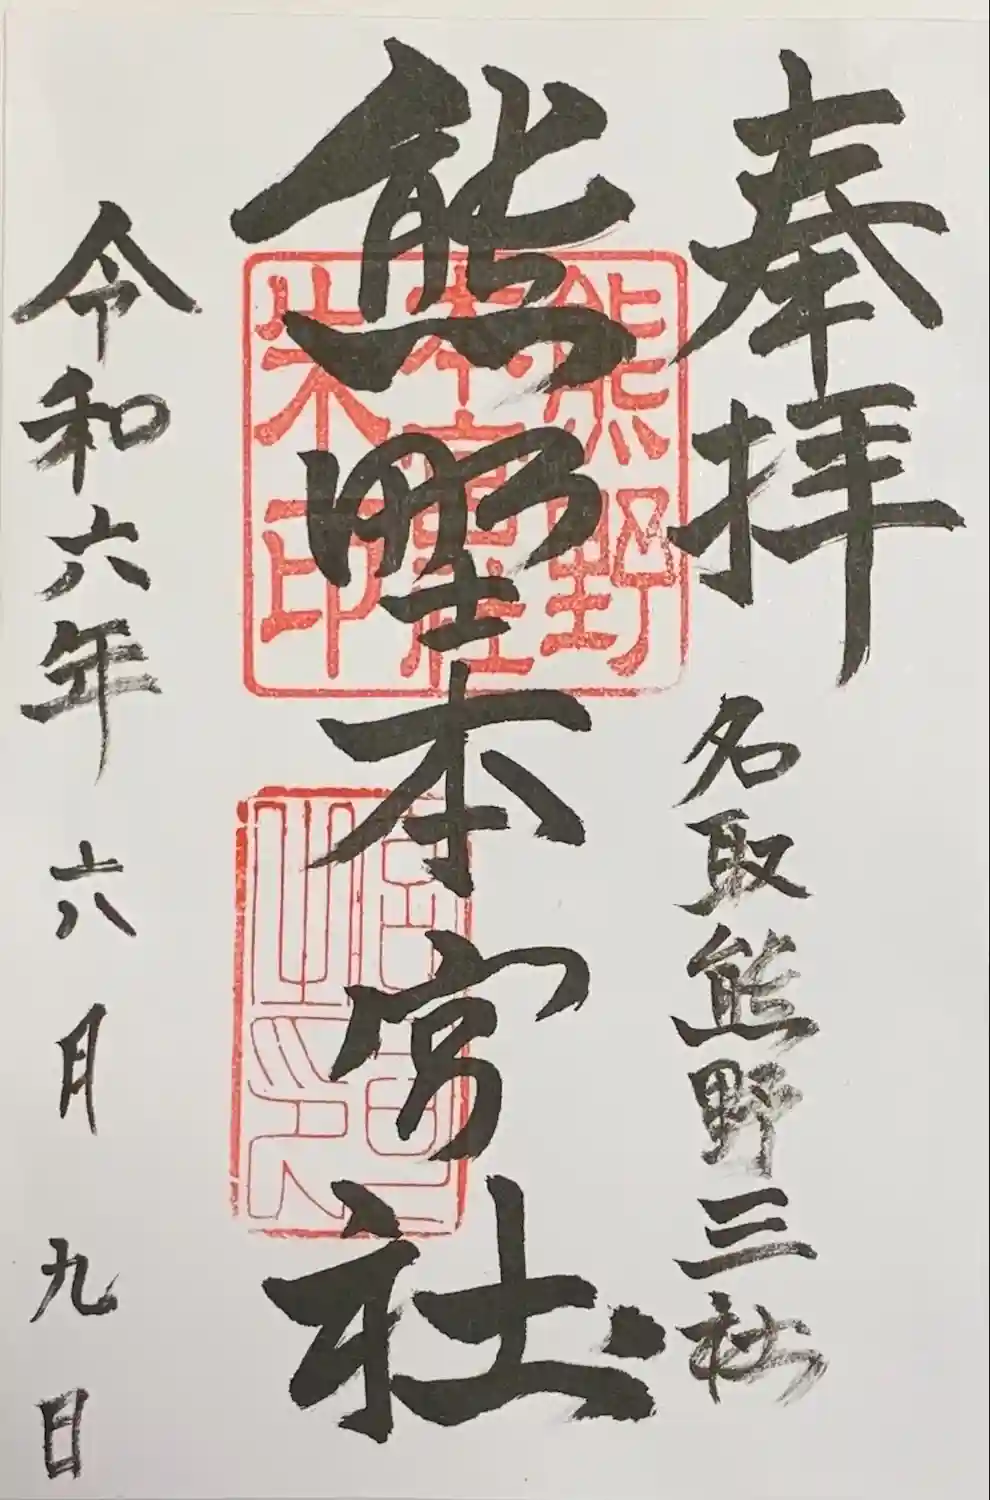 奉拝
名取熊野三社
熊野本宮社
熊野
本宮社
朱印
宮司
之印
令和六年 六月 九日